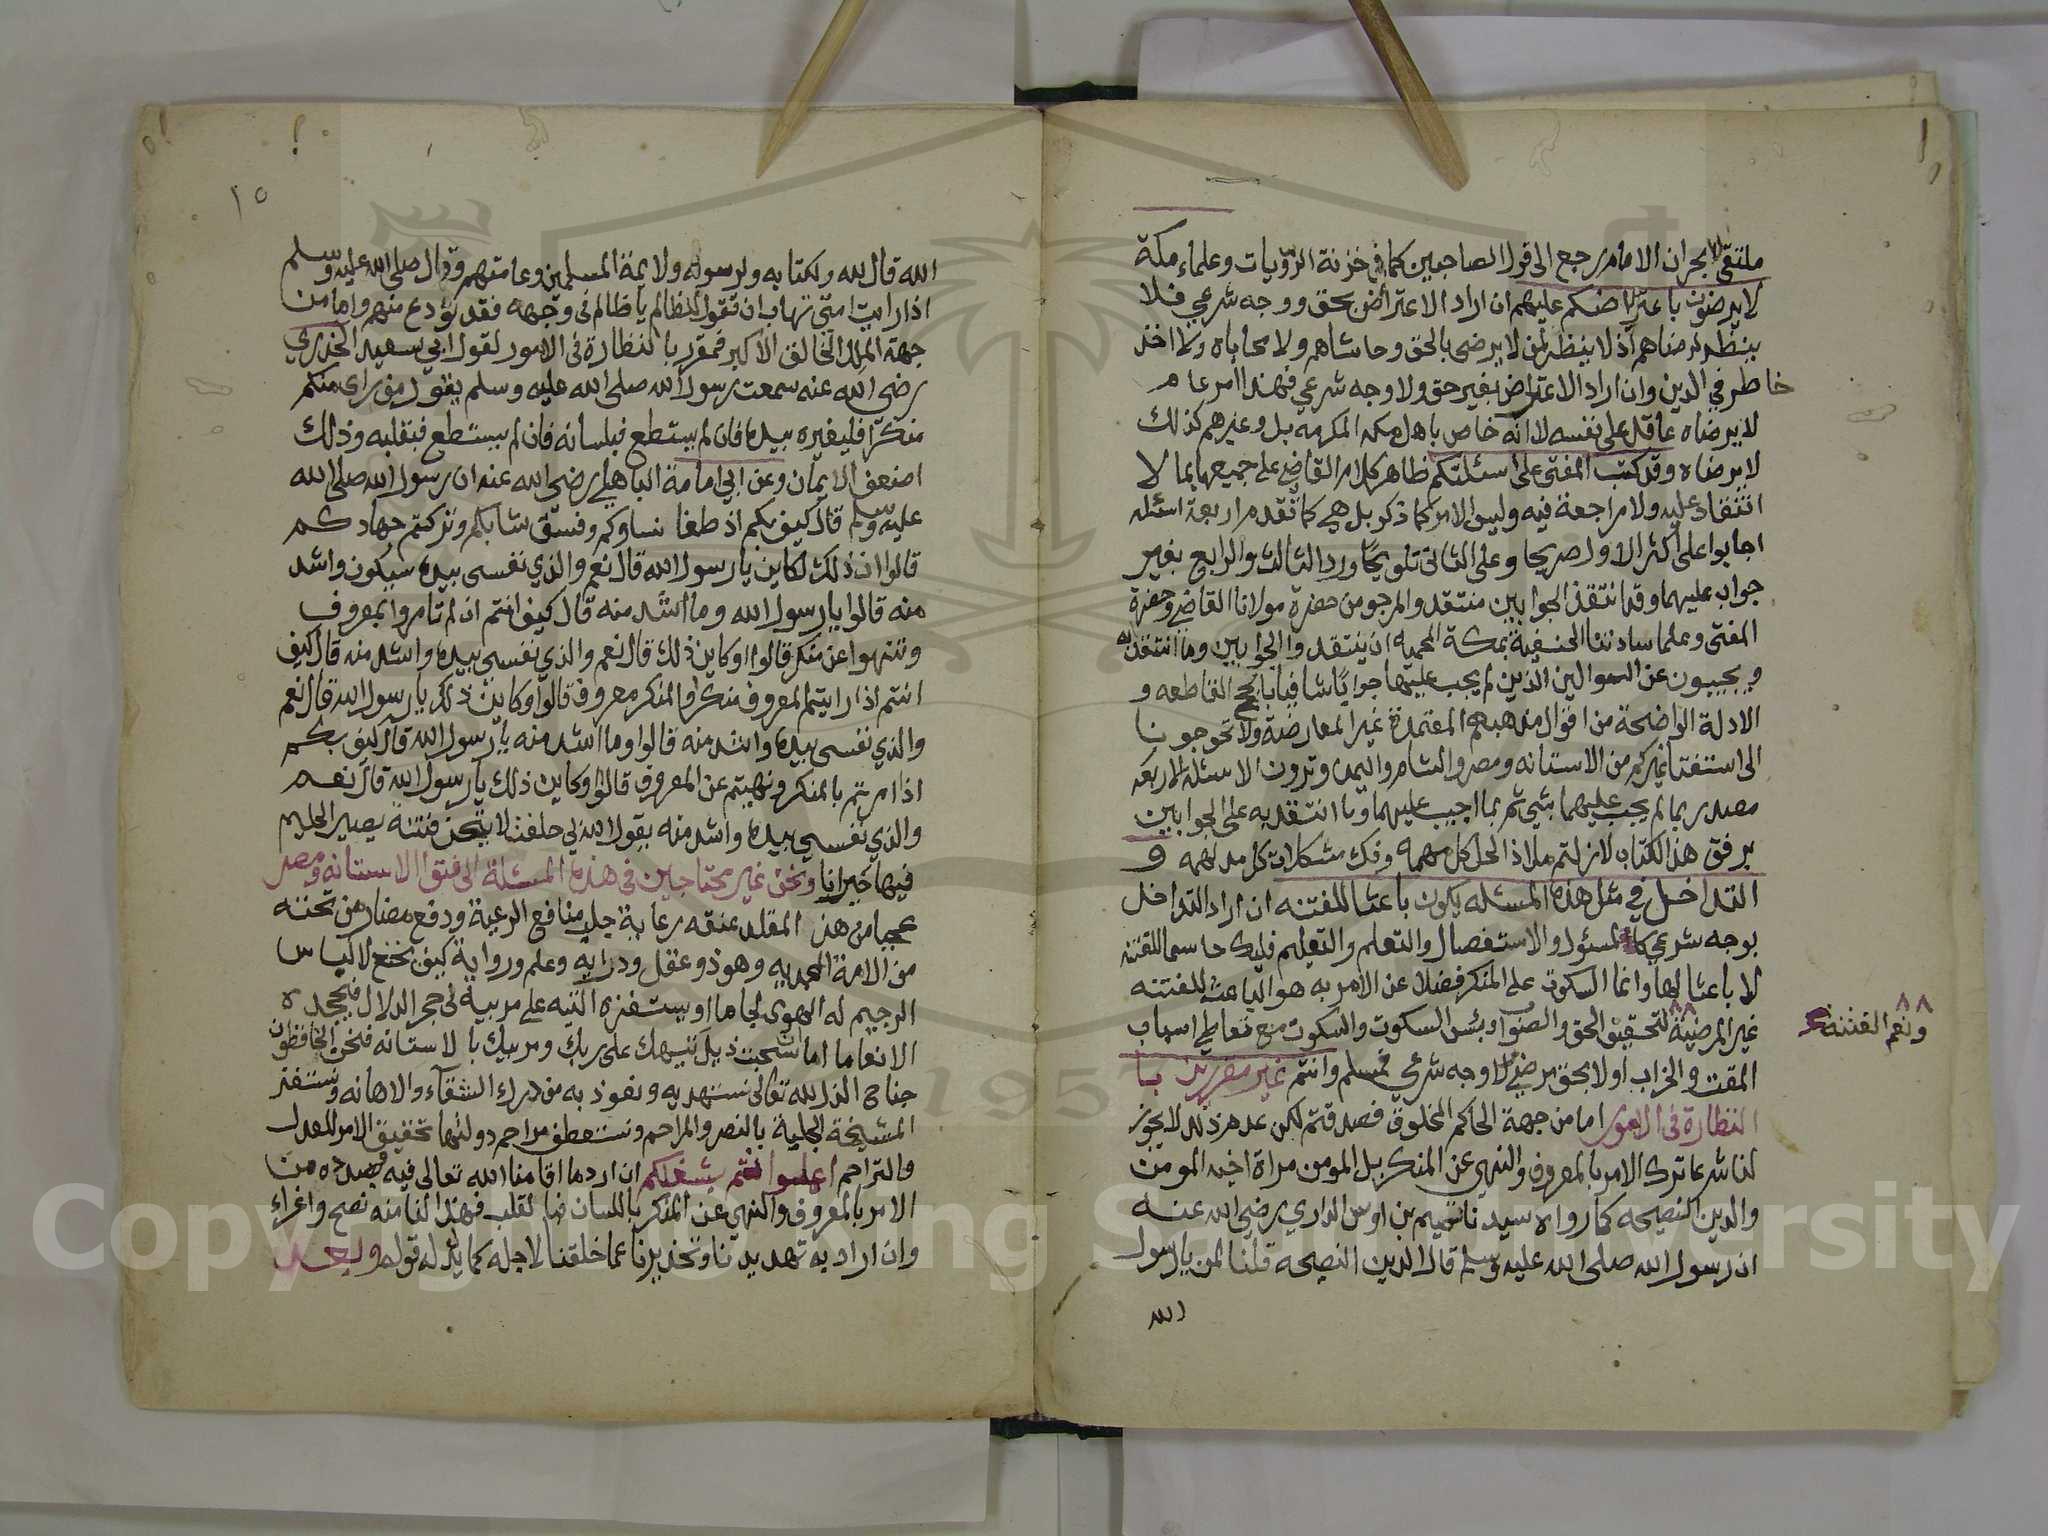 ملتقى الابحر ان الامام رجع الى قول الصاحبين كما في خزنة الرويات وعلماء مكة
لا يرضون باعتراضكم عليهم ان اراد الاعتراض بحق ووجه شرعي فلا
ينظر لرضاهم اذ لا ينظر لمن لا يرضى بالحق وحاشاهم ولا محاباه ولا اخذ
خاطر في الدين وان اراد الاعتراض بغير حق ولا وجه شرعي فهذا امر عام
لا يرضاه عاقل على نفسه لا انه خاص باهل مكه المكرمه بل وغيرهم كذلك
لا يرضاه وقد كتب المفتى على اسئلتكم ظاهر كلام القاضي على جميعها بما لا
انتقاد عليه ولا مراجعة فيه وليس الامر كما ذكر بل هي كما تقدم اربعة اسئله
اجابوا على اكثر الاول صريحا وعلى الثانى تلويحا ورد الثالث والرابع بغير
جواب عليهما وقد انتقد الجوابين منتقد والمرجو من حضرة مولانا القاضي وحضرة
المفتى وعلما سادتنا الحنفية بمكة المحميه ان ينتقدوا الجوابين وما انتقد به
ويجيبون عن السوالين الذين لم يجب عليهما جوابا شافيا بالحجج القاطعه و
الادلة الواضحة من اقوال مذهبهم المعتمدة غير المعارضة ولا تحوجونا
الى استفتا غيركم من الاستانه ومصر والشام واليمن وترون الاسئلة الاربعه
مصدر بما لم يجب عليهما بشي ثم بما اجيب عليهما وما انتقد به على الجوابين
برفق هذا الكتاب لازلتم ملاذا لحل كل مهمه وفك مشكلات كل مدلهمه و
التداخل في مثل هذه المسئله يكون باعثا للفتنه ان اراد التداخل
بوجه شرعي كالمسئول والاستفصال والتعلم والتعليم فليك حاسما للفتنه
لا باعثا لها وانما السكوت على المنكر فضلا عن الامر به هو الباعث للفتنه
غير المرضية لتحقيق الحق والصواب وبئس السكوت والسكوت مع تعاطي اسباب
ونعم الفتنة
المقت والخراب او لا بحق مرضي لا وجه شرعي فمسلم وانتم غير مقرين با
النظارة فى الامور اما من جهة الحاكم المخلوق فصدقتم لكن عدم ذلك لا يجوز
لنا شرعا ترك الامر بالمعروف والنهي عن المنكر بل المومن مراة اخيه المومن
والدين النصيحه كما رواه سيدنا تميم بن اوس الداري رضي الله عنه
ان رسول الله صلى الله عليه وسلم قال الدين النصيحه قلنا لمن يا رسول
الله
١٥
الله قال لله ولكتابه ولرسوله ولائمة المسلمين وعامتهم وقال صلى الله عليه وسلم
اذا رايت امتي تهاب ان تقول للظالم يا ظالم في وجهه فقد تودع منهم واما من
جهة الملك الخالق الاكبر فمقرر بالنظارة فى الامور لقول ابي سعيد الخدري
رضي الله عنه سمعت رسول الله صلى الله عليه وسلم يقول من راى منكم
منكرا فليغيره بيده فان لم يستطع فبلسانه فان لم يستطع فبقلبه وذلك
اضعف الايمان وعن ابي امامة الباهلي رضي الله عنه ان رسول الله صلى الله
عليه وسلم قال كيف بكم اذ طغا نساوكم وفسق شابكم وتركتم جهادكم
قالوا ان ذلك لكاين يا رسول الله قال نعم والذي نفسى بيده سيكون واشد
منه قالوا يا رسول الله وما اشد منه قال كيف انتم ان لم تامروا بمعروف
وتنهوا عن منكر قالوا اوكاين ذلك قال نعم والذي نفسي بيده واشد منه قال كيف
انتم اذا رايتم المعروف منكرا والمنكر معروفا قالوا اوكاين ذلك يا رسول الله قال نعم
والذي نفسي بيده واشد منه قالوا وما اشد منه يا رسول الله قال كيف بكم
اذا امرتم بالمنكر ونهيتم عن المعروف قالوا وكاين ذلك يا رسول الله قال نعم
والذي نفسي بيده واشد منه يقول الله لي حلفت لاتيحن فتنة يصير الحليم
فيها حيرانا ونحن غير محتاجين فى هذه المسئلة الى فتق الاستانه ومصر
عجبا من هذا المقلد عنقه رعاية جلب منافع الرعية ودفع مضار من تحته
من الامة المحمديه وهو ذو عقل ودرايه وعلم ورواية كيف يخنع لالباس
الرجيم له الهوى لجاما او يستفزه التيه على مربيه فى حجر الدلال فيجحده
الانعاما اما انسحبت ذيل تيهك على ربك ومربيك بالاستانه فنحن الخافظون
جناح الذل لله تعالى نستهديه ونعوذ به من درك الشقاء والاهانه ونستفز
المشيخة الجلية بالنصر والمراحم ونستعطف مراحم دولتها تحقيق الامر للعدل
والتراحم اعلموا انتم بشغلكم ان اردما اقامنا الله تعالى فيه وبصدده من
الامر بالمعروف والنهي عن المنكر باللسان فبالقلب فهذا لنا منه نصح واغراء
وان اراد به تهديدنا وتحذيرنا عما خلقنا لاجله كما يدل له قوله وبعد